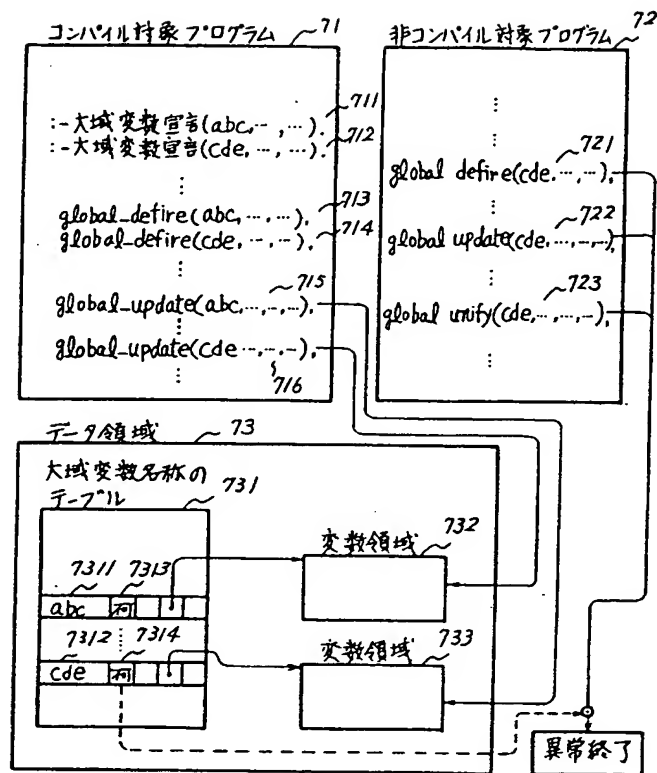 コンパイル対象プログラム 71
:-大域変数宣言(abc,…,…). 711
:-大域変数宣言(cde,…,…). 712
global_defire(abc,…,…), 713
global_defire(cde,…,…), 714
global_update(abc,…,…,…), 715
global_update(cde…,…,…), 716
非コンパイル対象プログラム 72
global defire(cde,…,…), 721
global update(cde,…,…,…), 722
global unify(cde,…,…,…), 723
データ領域 73
大域変数名称の
テーブル 731
7311 7313
abc 可
7312 7314
cde
変数領域 732
変数領域 733
異常終了